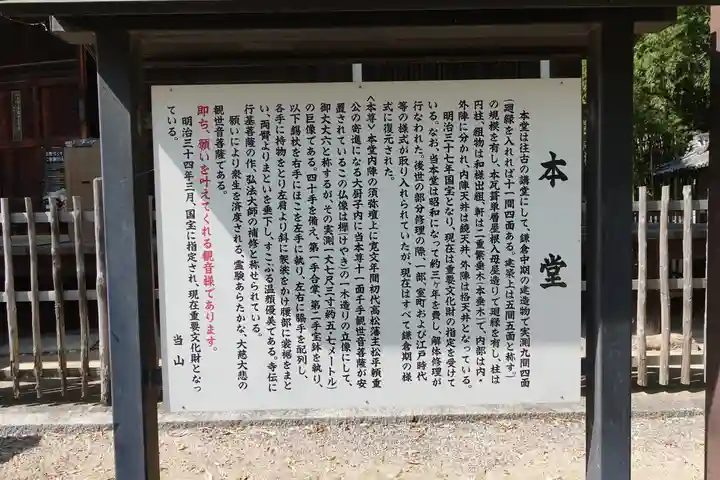 本堂
本堂は往古の講堂にして、鎌倉中期の建造物で実測九間四面
(廻縁を入れれば十一間四面ある。建築上は五間五面と称す。)
の規模を有し、本瓦葺単層屋根入母屋造りで廻縁を有し、柱は
円柱、組物は和様出組、軒は二重繁垂木(本垂木)で、内部は内・
外陣に分かれ、内陣天井は鏡天井、外陣は格天井となっている。
明治三十七年国宝となり、現在は重要文化財の指定を受けて
いる。なお、当本堂は昭和になって約三ヶ年を費し、解体修理が
行なわれた。後世の部分修理の際、一部、室町および江戸時代
等の様式が取り入れられていたが、現在はすべて鎌倉期の様
式に復元された。
〈本尊〉本堂内陣の須弥壇上に寛文年間初代高松藩主松平頼重
公の寄進になる大厨子内に当本尊十一面千手観世音菩薩が安
置されているこの仏像は欅(けやき)の一木造りの立像にして、
御丈大六と称するが、その実測一大七尺三寸(約五・七メートル)
の巨像である。四十手を備え、第一手合掌、第二手宝鉢を執り、
以下錫杖を右手にほこを左手に執り、左右に脇手を配列し、
各手に持物をとり左肩より斜に袈裟をかけ腰部に裳裾をまと
い、両臂よりまといを垂下し、すこぶる温顔優美である。寺伝に
行基菩薩の作、弘法大師の補修と称せられている。
願いにより衆生を済度される、霊験あらたかな、大慈大悲の
観世音菩薩である。
即ち、願いを叶えてくれる観音様であります。
明治三十四年三月、国宝に指定され、現在重要文化財となっ
ている。
当山